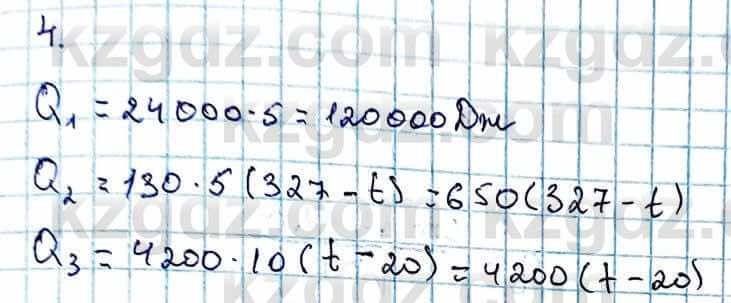 4.
Q₁ = 24000·5 = 120000 Дж
Q₂ = 130·5(327 - t) = 650(327 - t)
Q₃ = 4200·10(t - 20) = 4200(t - 20)
kzgdz.com kzgdz.com
kzgdz.com
kzgdz.com